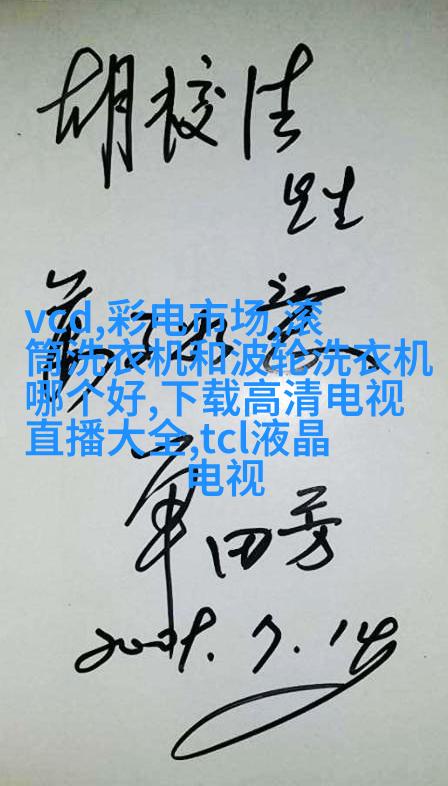 先生
vcd,彩电市场,滚
筒洗衣机和波轮洗衣机
哪个好,下载高清电视
直播大全,tcl液晶
电视
单田芳